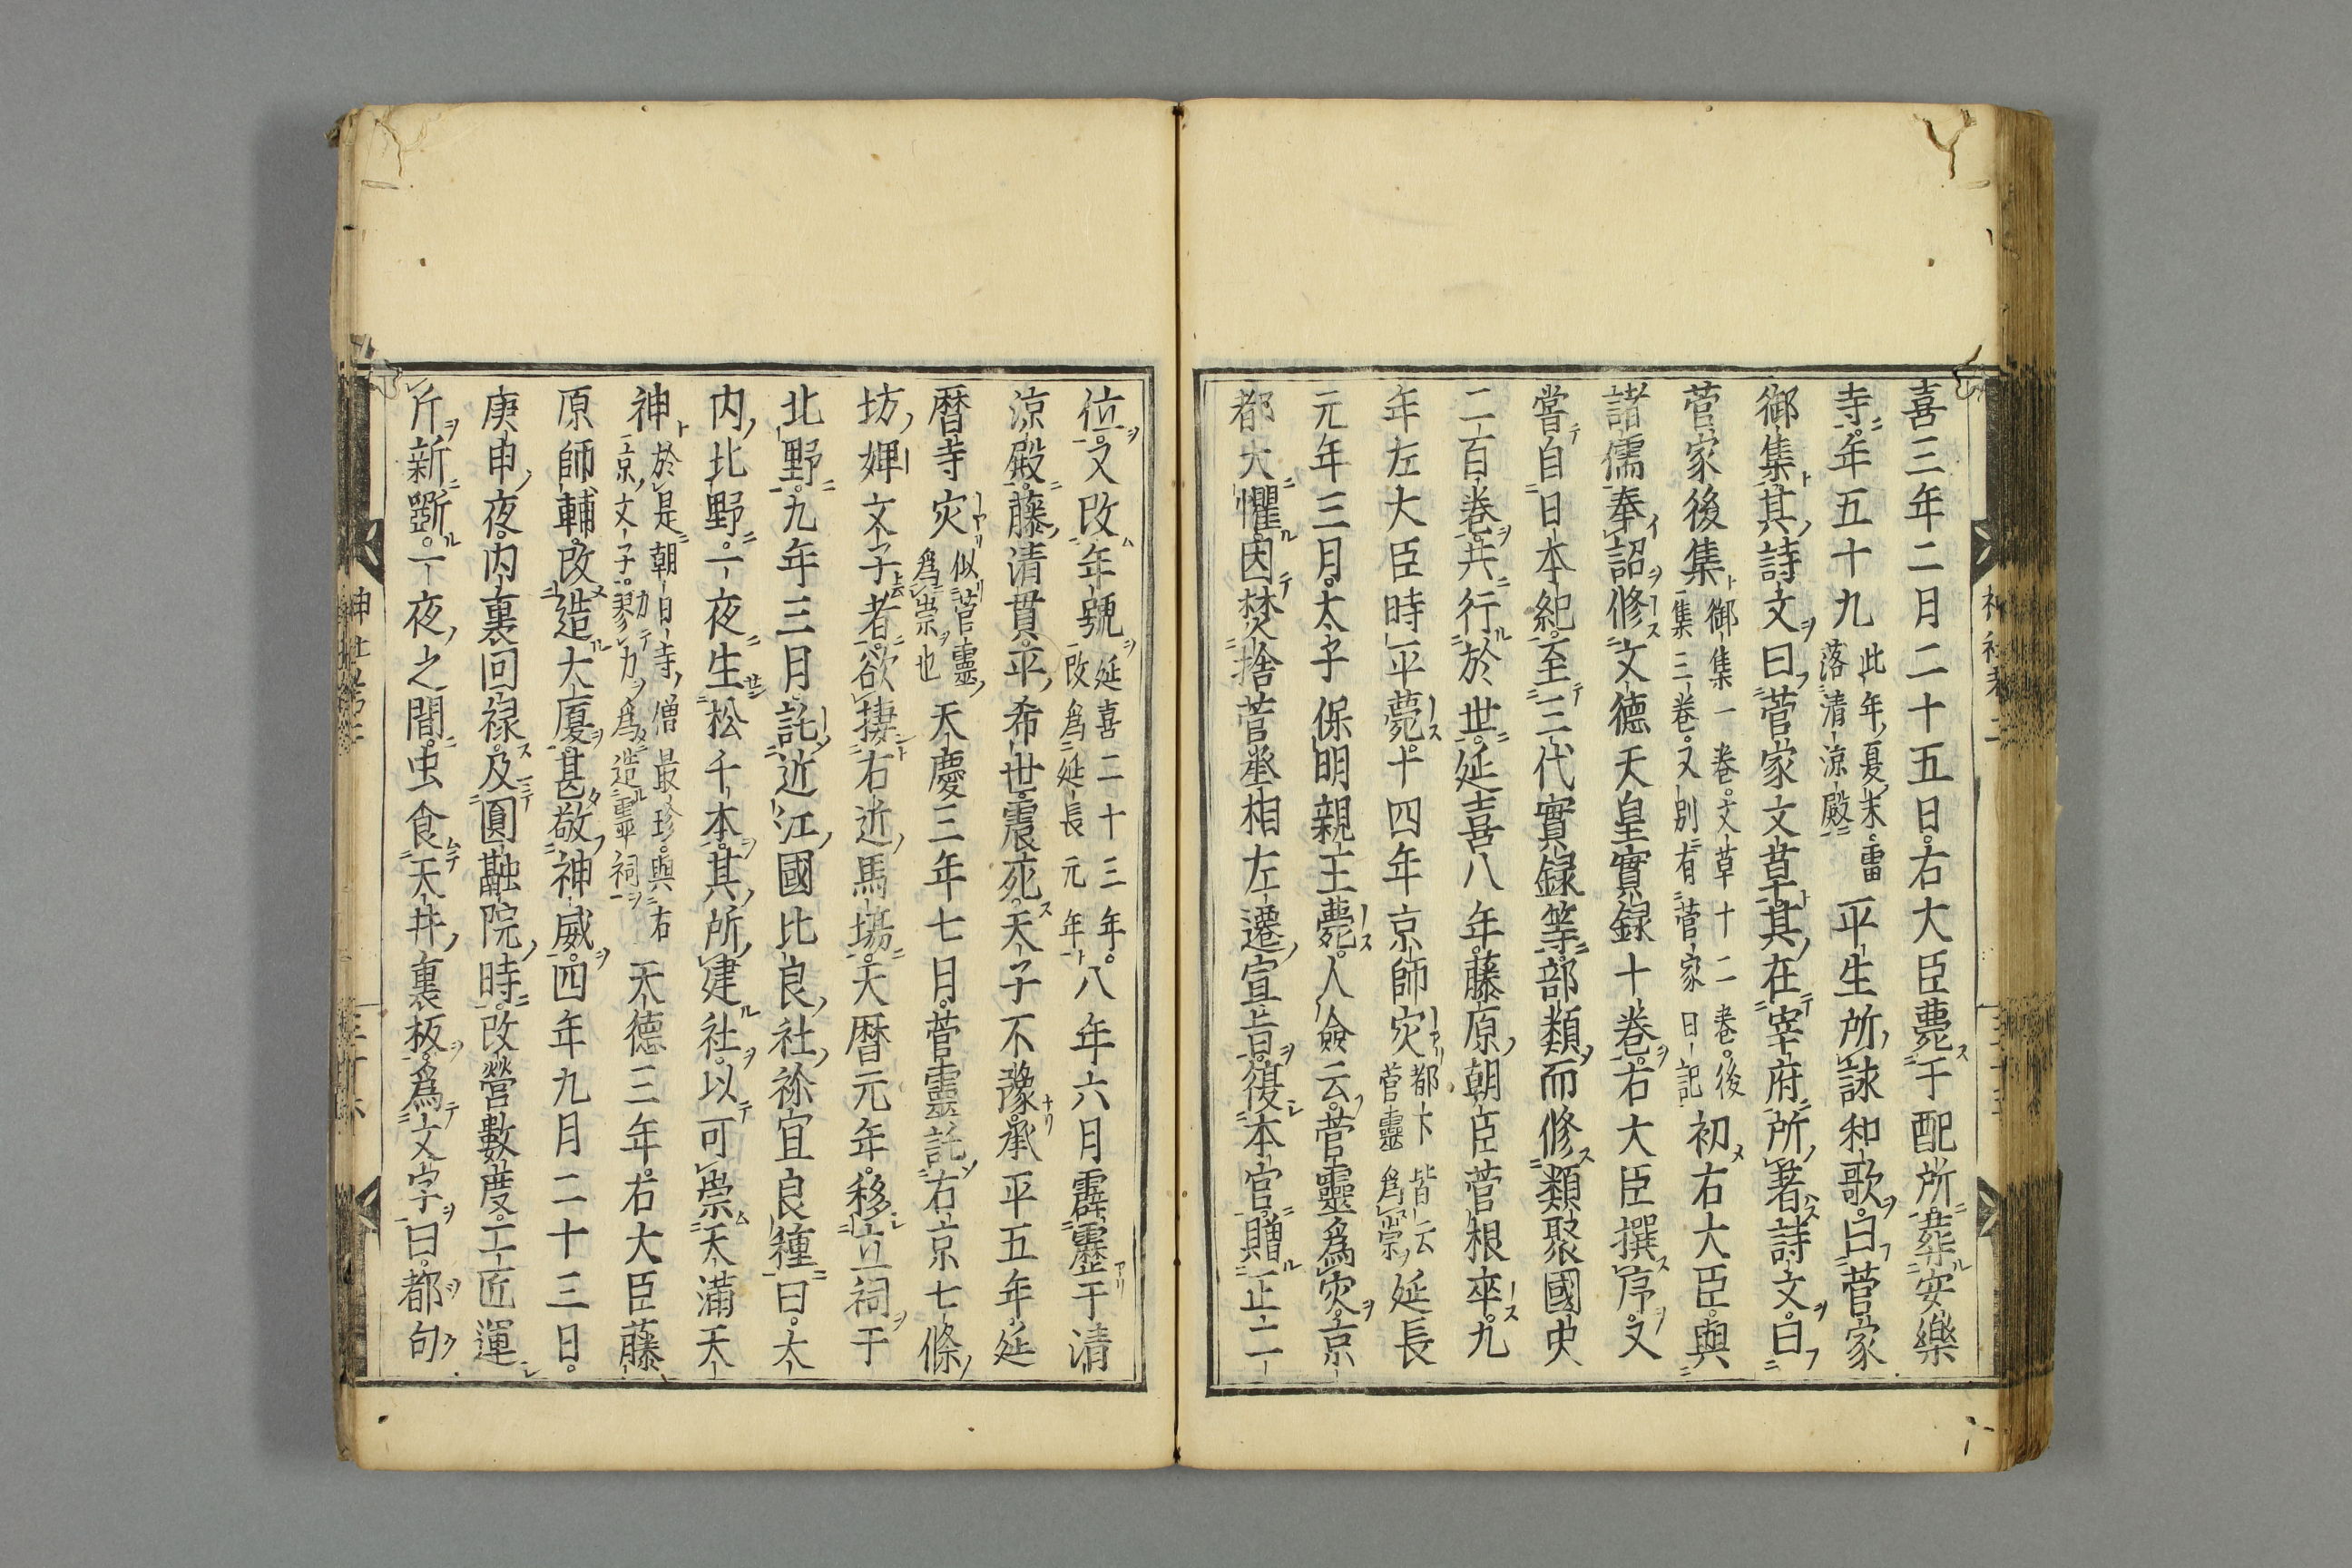 喜三年二月二十五日。右大臣薨于配所。葬安樂
寺。年五十九此年夏末。雷落清涼殿平生所詠和歌。曰菅家
御集。其詩文曰菅家文草。其在宰府所著詩文。曰
菅家後集御集一卷。文草十二卷。後集三卷。又別有菅家日記初右大臣。與
諸儒奉詔修文德天皇實録十卷。右大臣撰序。又
嘗自日本紀。至三代實録等。部類而修類聚國史
二百卷。共行於世。延喜八年。藤原朝臣菅根卒。九
年左大臣時平薨。十四年京師灾都卞皆云菅靈爲祟延長
元年三月。太子保明親王薨。人僉云。菅靈爲灾。京
都大懼。因焚捨菅丞相左遷宣旨。復本官。贈正二
位。又改年號延喜二十三年。改爲延長元年八年六月霹靂于清
涼殿。藤清貫。平希世。震死。天子不豫。承平五年。延
暦寺灾似菅靈爲祟也天慶三年七月。菅靈託右京七條
坊婢文子者。欲捿右近馬塲。天暦元年。移立祠于
北野。九年三月。託近江國比良社祢宜良種曰。太
内北野。一夜生松千本。其所建社。以可崇天滿天
神於是朝日寺僧最珍。與右京文子。勠力爲造靈祠天德三年。右大臣藤
原師輔。改造大廈。甚敬神威。四年九月二十三日。
庚申夜。内裏回禄。及圓融院時。改營數度。工匠運
斤新斵。一夜之間。虫食天井裏板。爲文字曰。都句